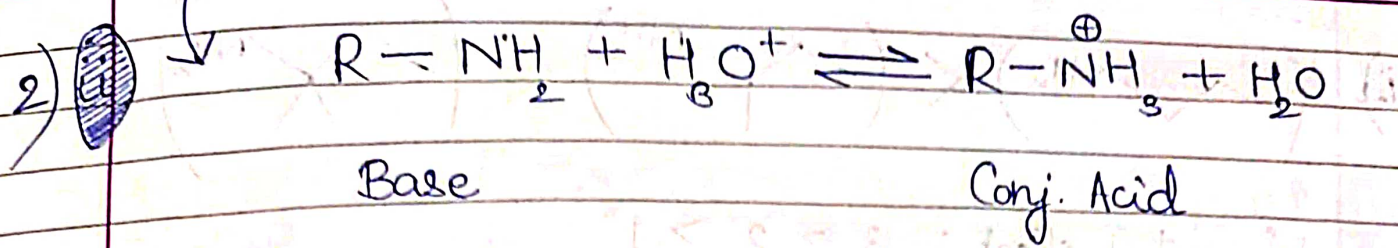 2) R – NH₂ + H₃O⁺ ⇌ R – N⊕H₃ + H₂O
Base Conj. Acid